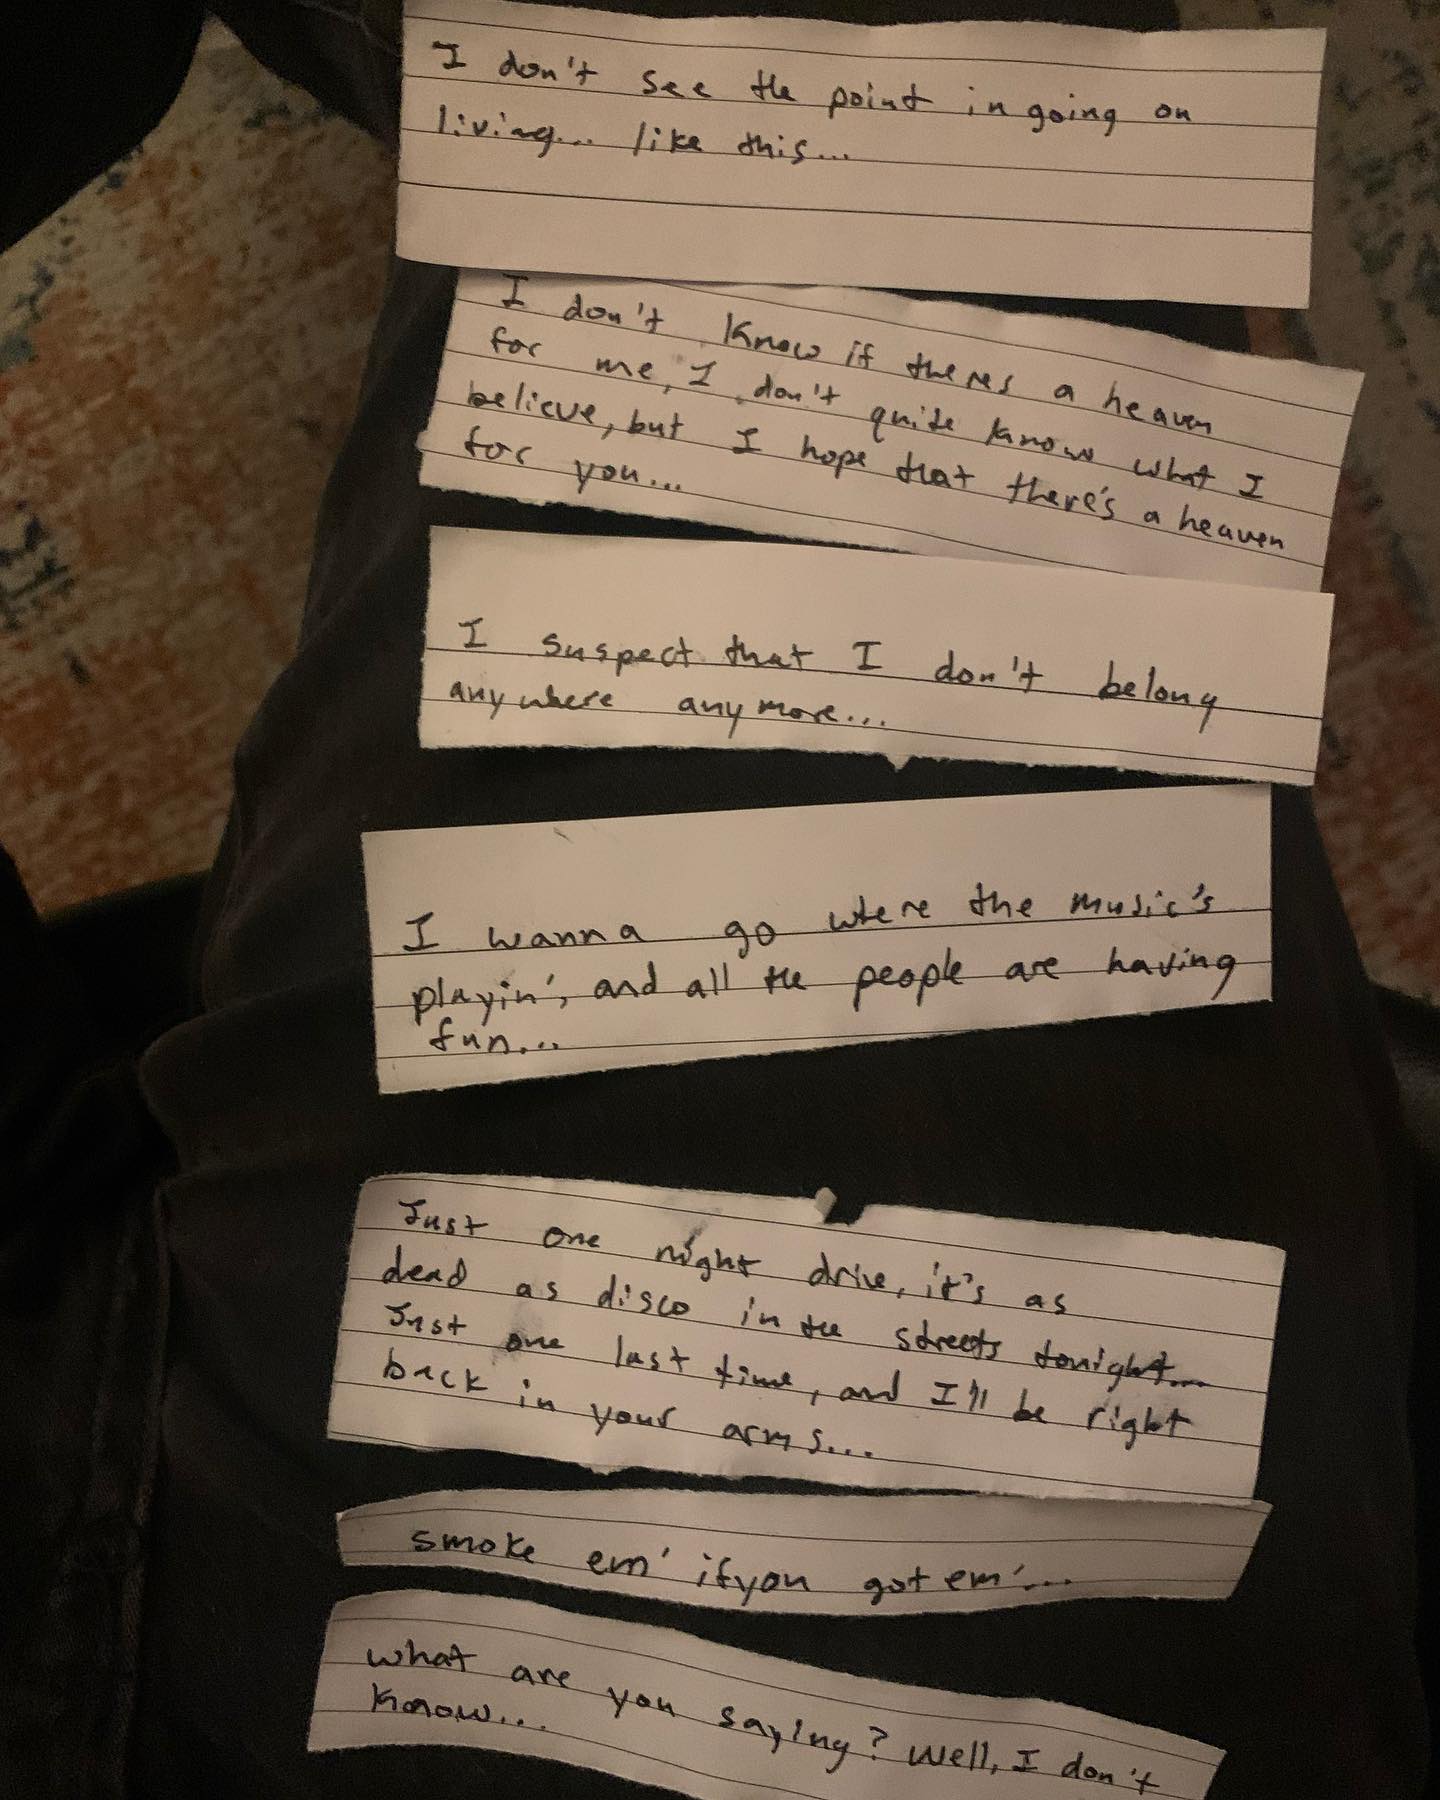 I don't see the point in going on
living... like this...
I don't know if theres a heaven
for me, I don't quite know what I
believe, but I hope that there's a heaven
for you...
I suspect that I don't belong
anywhere anymore...
I wanna go where the music's
playin', and all the people are having
fun...
Just one night drive, it's as
dead as disco in the streets tonight...
Just one last time, and I'll be right
back in your arms...
smoke em' if you got em'...
what are you saying? Well, I don't
know...